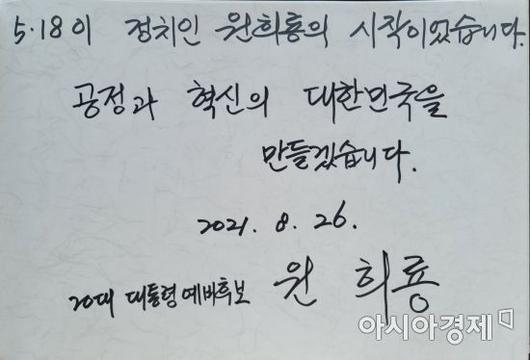 5·18이 정치인 원희룡의 시작이었습니다.
공정과 혁신의 대한민국을
만들겠습니다.
2021. 8. 26.
20대 대통령 예비후보 원 희 룡
아시아경제